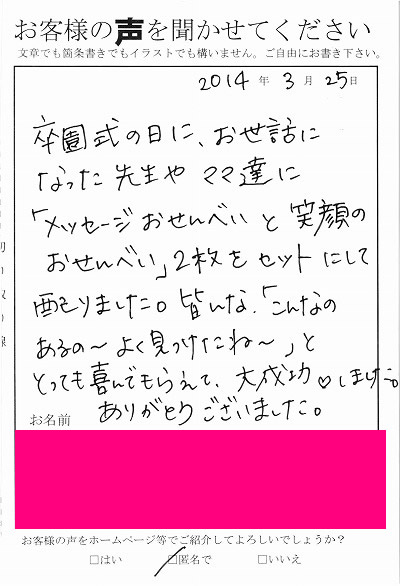 お客様の声を聞かせてください
文章でも箇条書きでもイラストでも構いません。ご自由にお書き下さい。
2014年 3月 25日
卒園式の日に、お世話に
なった先生や ママ達に
「メッセージおせんべいと笑顔の
おせんべい」2枚をセットにして
配りました。皆んな、「こんなの
あるの〜よく見つけたね〜」と
とっても喜んでもらえて、大成功♡しました。
ありがとうございました。
お名前
お客様の声をホームページ等でご紹介してよろしいでしょうか？
□はい □匿名で □いいえ